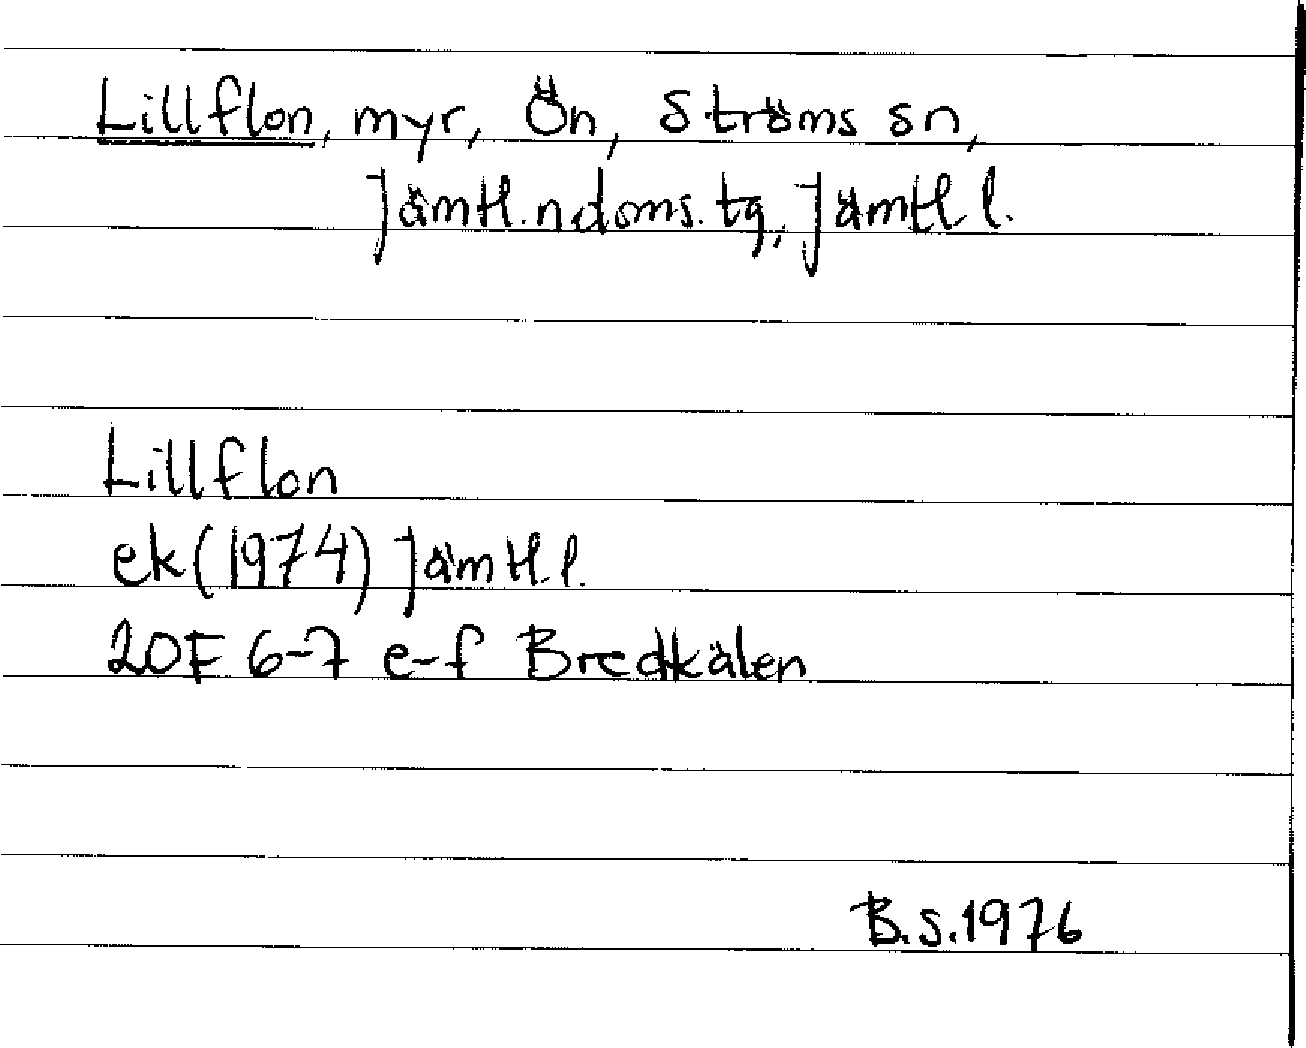 Lillflon, myr, Ön, Ströms sn,
Jämtl. n. doms. tg, Jämtl. l.
Lillflon
ek (1974) Jämtl. l.
20F 6-7 e-f Bredkälen
B.S. 1976